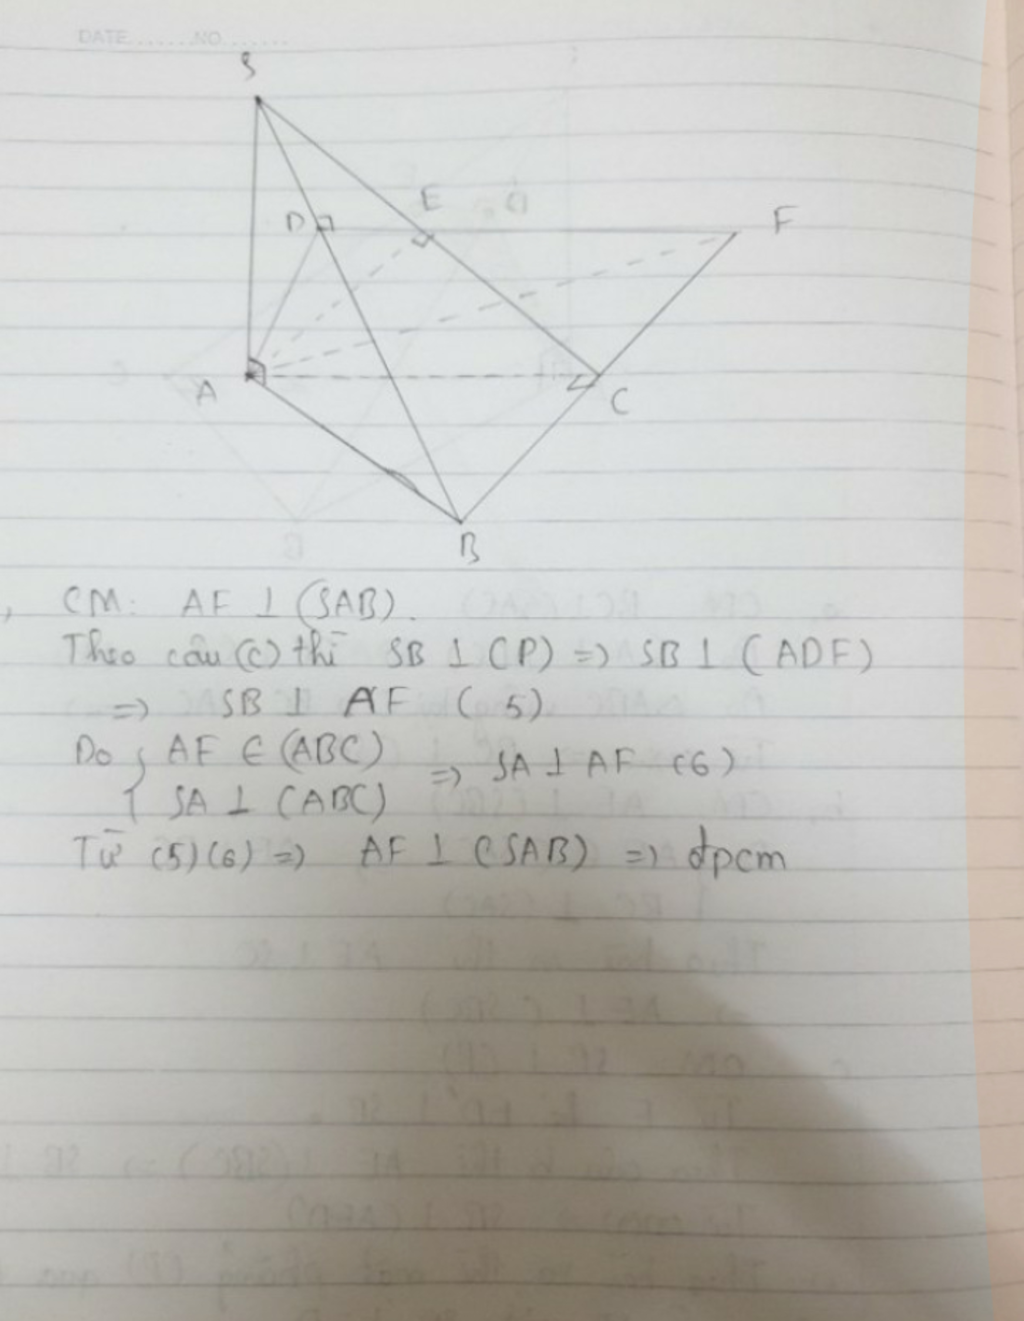 DATE.......NO.......
S
E
D
F
A
C
B
CM: AF ⊥ (SAB).
Theo câu (c) thì SB ⊥ (P) => SB ⊥ (ADF)
=> SB ⊥ AF (5)
Do { AF ∈ (ABC)
SA ⊥ (ABC) => SA ⊥ AF (6)
Từ (5)(6) => AF ⊥ (SAB) => đpcm